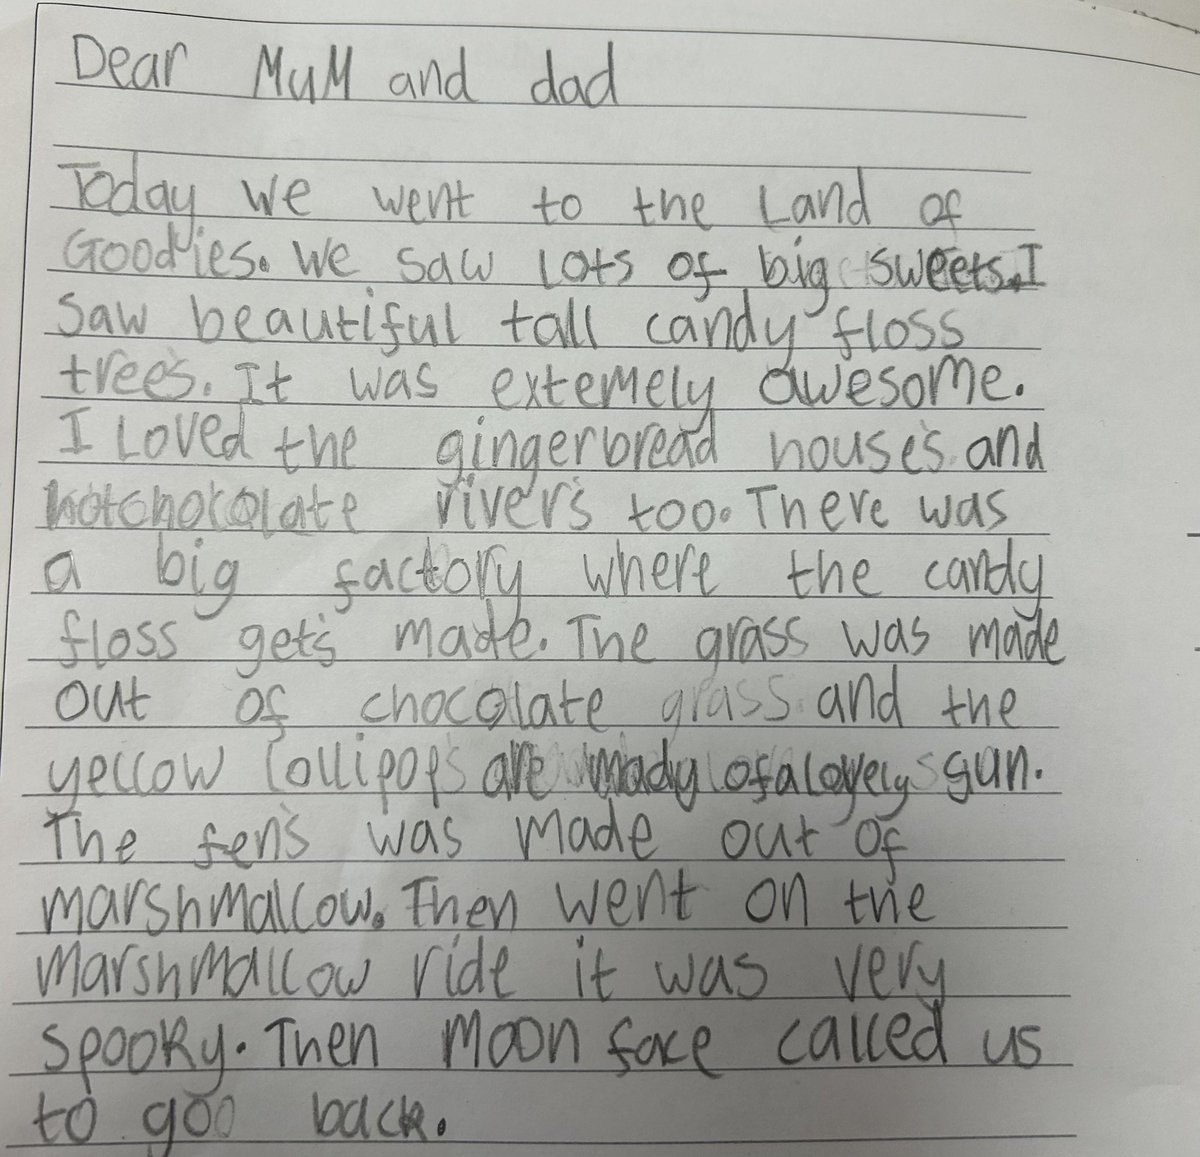 Dear MuM and dad
Today we went to the Land of
Goodies. We saw lots of big sweets. I
saw beautiful tall candy floss
trees. It was extemely awesome.
I Loved the gingerbread houses and
hotchocolate rivers too. There was
a big factory where the candy
floss gets made. The grass was made
out of chocolate grass and the
yellow lollipops are mady of a lovely sun.
The fens was made out of
marshmallow. Then went on the
marshmallow ride it was very
spooky. Then Moon face called us
to go back.